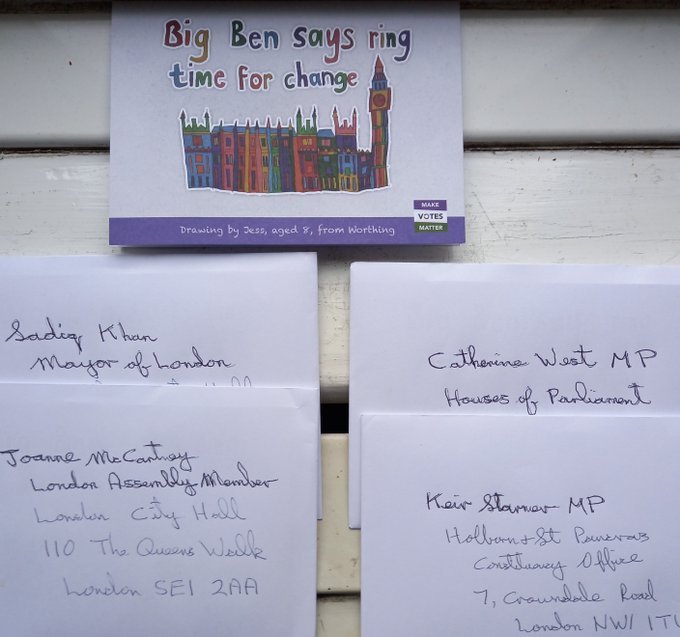 Big Ben says ring
time for change
MAKE
VOTES
MATTER
Drawing by Jess, aged 8, from Worthing
Sadiq Khan
Mayor of London
Catherine West MP
Houses of Parliament
Joanne McCartney
London Assembly Member
London City Hall
110 The Queens Walk
London SE1 2AA
Keir Starmer MP
Holborn & St Pancras
Constituency Office
7, Crowndale Road
London NW1 1TU